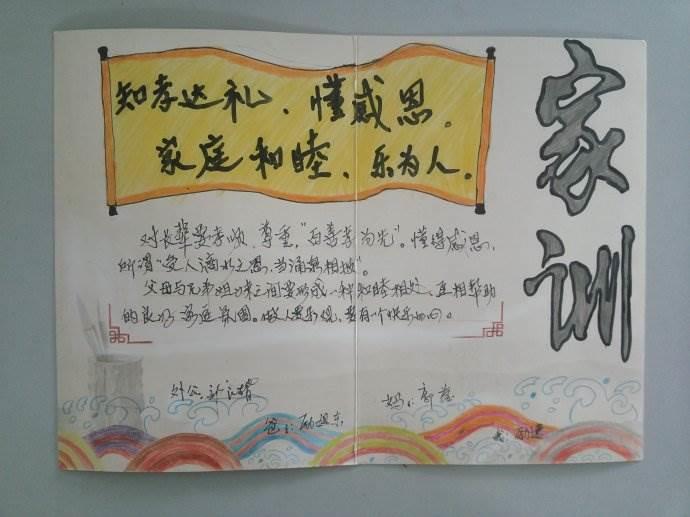 家训
知孝达礼、懂感恩。
家庭和睦、乐为人。
对长辈要孝顺、尊重,"百善孝为先"。懂得感恩,
所谓"受人滴水之恩,当涌泉相报"。
父母与兄弟姐妹之间要形成一种和睦相处、互相帮助
的良好家庭氛围。做人要乐观,要有一个快乐的心。
外公:
爸:
妈: